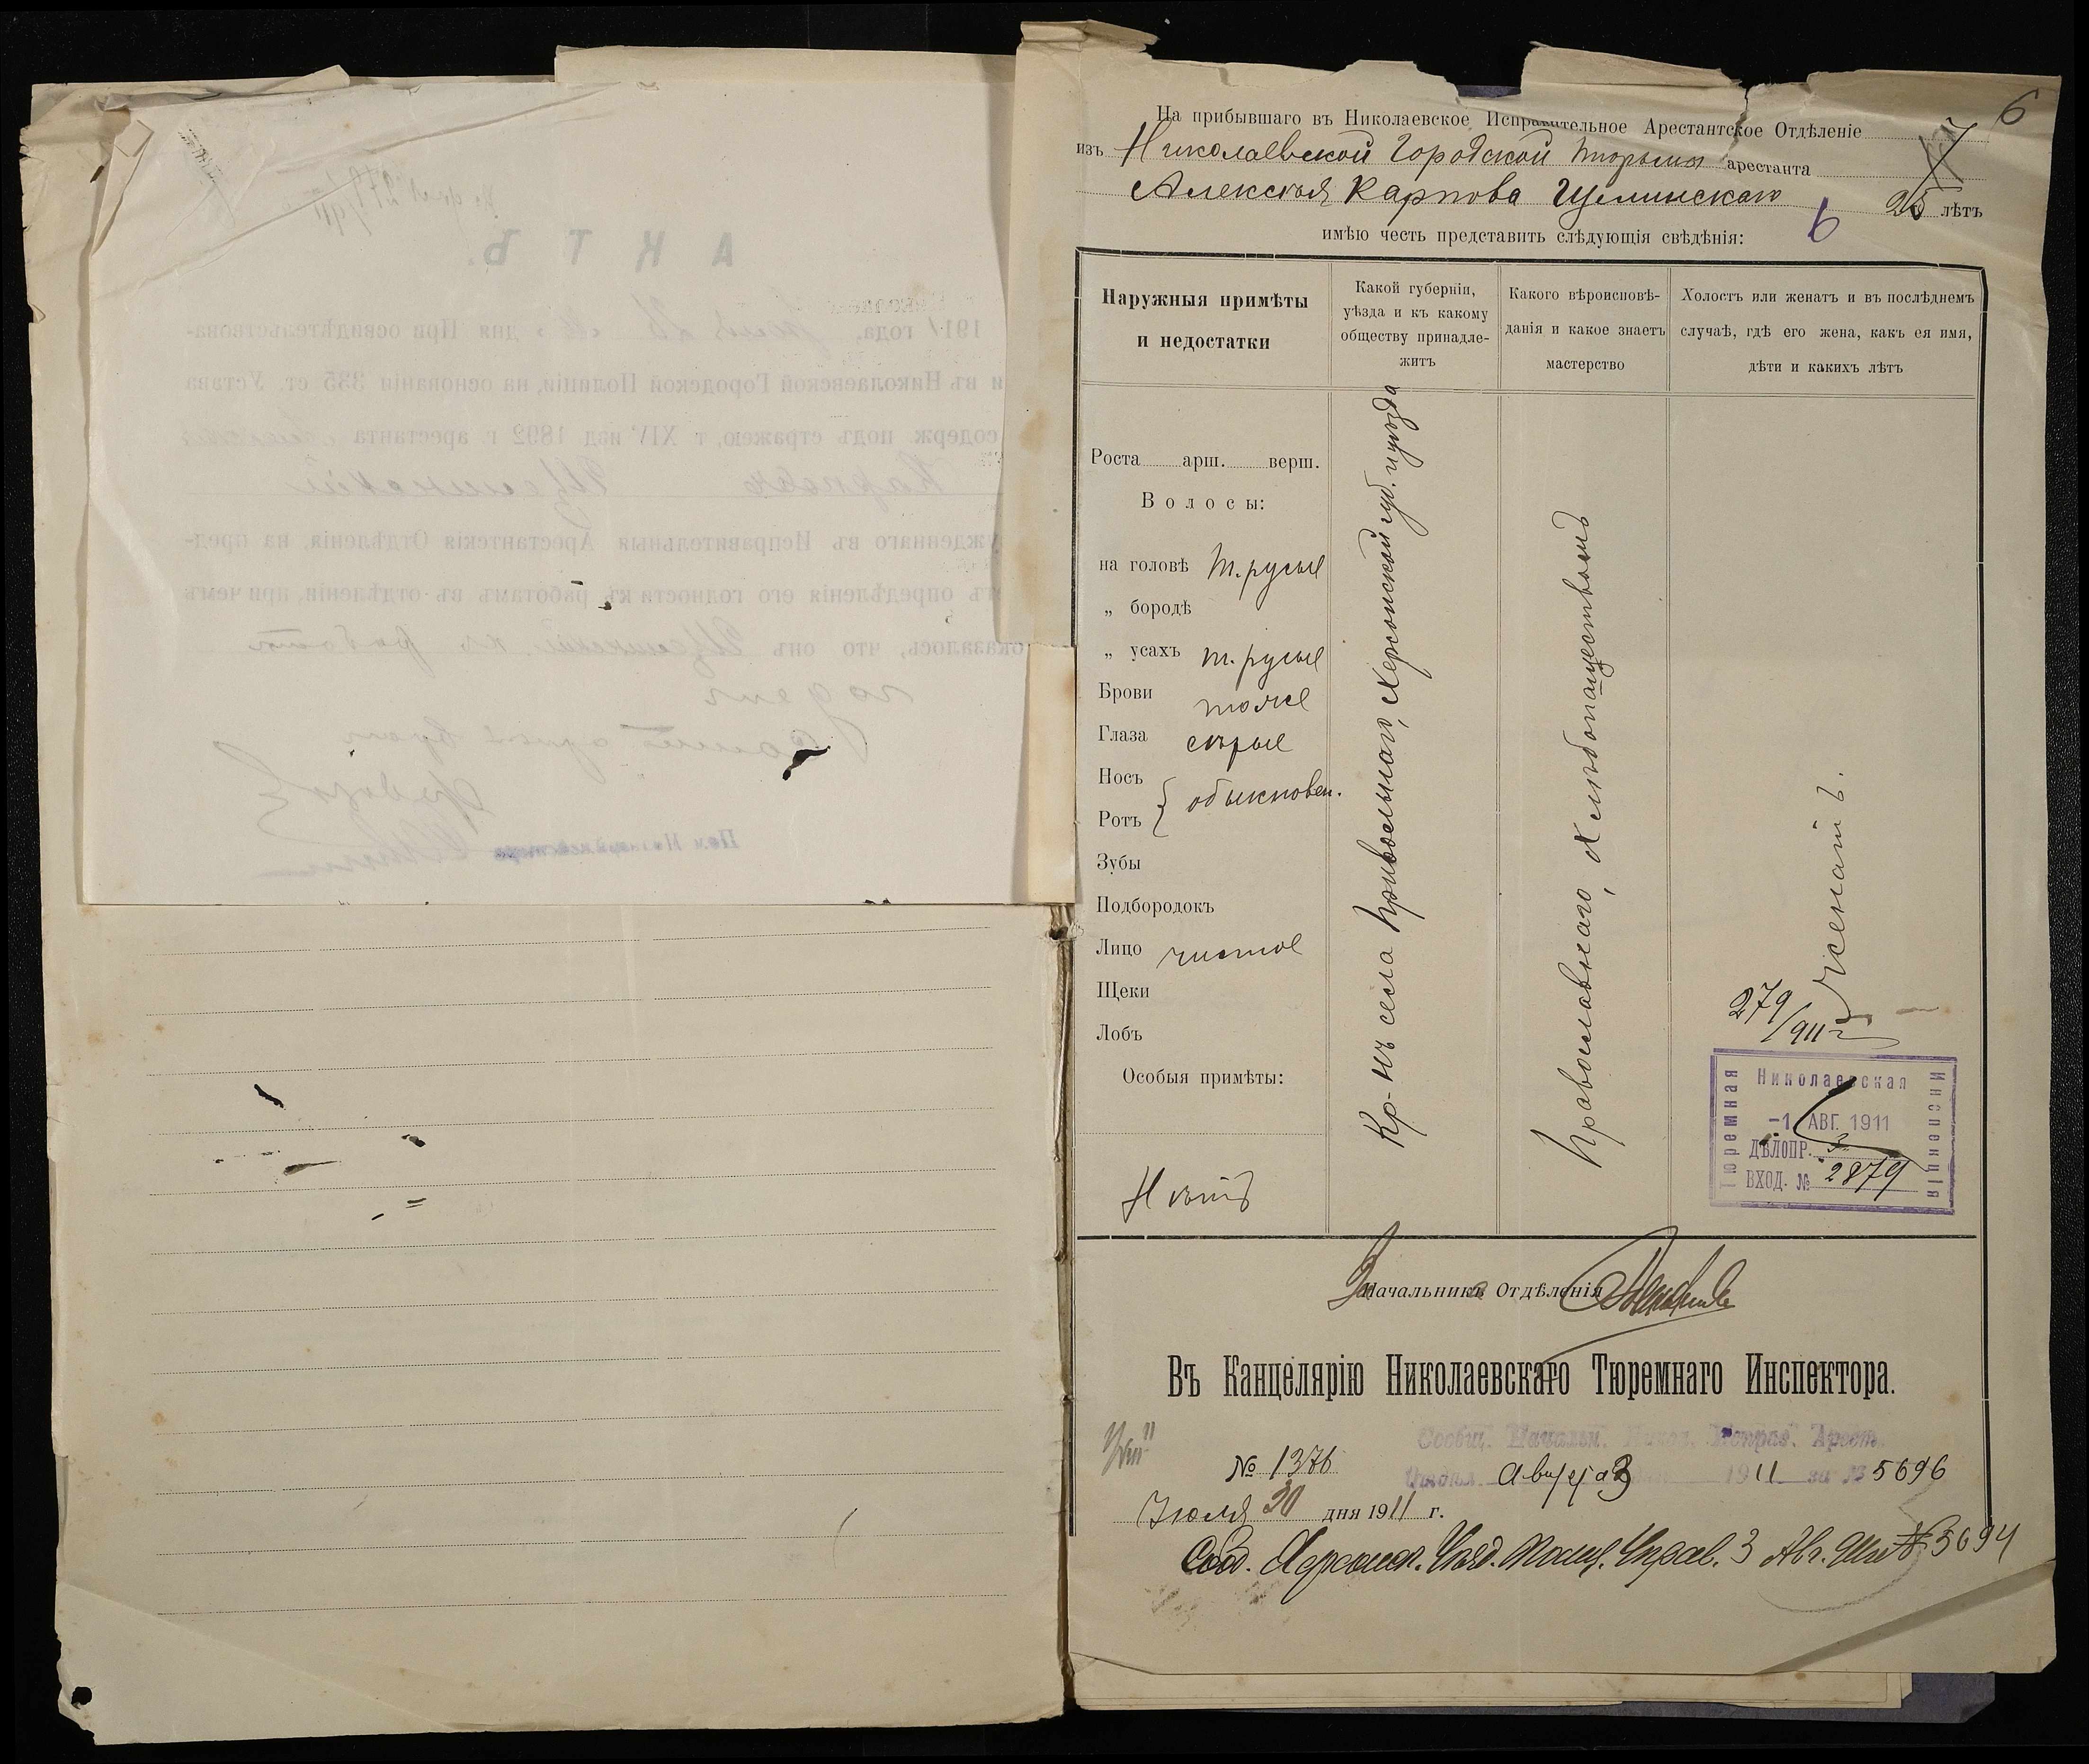 6
На прибывшаго въ Николаевское Исправительное Арестантское Отдѣленіе 7
изъ Николаевской Городской тюрьмы арестанта
Алексѣя Карпова Щелинскаго 25 лѣтъ
6
имѣю честь представить слѣдующія свѣдѣнія:
Наружныя примѣты
и недостатки
Какой губерніи,
уѣзда и къ какому
обществу принадле-
житъ
Какого вѣроисповѣ-
данія и какое знаетъ
мастерство
Холостъ или женатъ и въ послѣднемъ
случаѣ, гдѣ его жена, какъ ея имя,
дѣти и какихъ лѣтъ
Роста арш. верш.
Волосы:
на головѣ т. русые
„ бородѣ
„ усахъ т. русые
Брови тоже
Глаза сѣрые
Носъ
Ротъ } обыкновен.
Зубы
Подбородокъ
Лицо чистое
Щеки
Лобъ
Особыя примѣты:
Нѣтъ
Кр-нъ села Привольнаго, Херсонской губ. и уѣзда
Православнаго, Хлѣбопашествомъ
Женатъ.
279/911 г
Николаевская
Тюремная
Инспекція
-1 АВГ. 1911
ДѢЛОПР. 3
ВХОД. № 2879
За Начальника Отдѣленія
Въ Канцелярію Николаевскаго Тюремнаго Инспектора.
Сообщ. Начальн. Никол. Исправ. Арест.
Отдѣл. Августа 3 1911 за № 5696
№ 1376
Іюля 30 дня 1911 г.
Сооб. Херсонск. Уѣзд. Полиц. Управ. 3 Авг. 911 № 5694
АКТЪ.
1911 года, дня При освидѣтельствова-
и въ Николаевской Городской Полиціи, на основаніи 335 ст. Устава
содерж. подъ стражею, т. XIV изд. 1892 г. арестанта
Карповъ Щелинскій
ужденнаго въ Исправительныя Арестантскія Отдѣленія, на пред-
тъ опредѣленія его годности къ работамъ въ отдѣленіи, при чемъ
оказалось, что онъ Щелинскій къ работѣ
годенъ